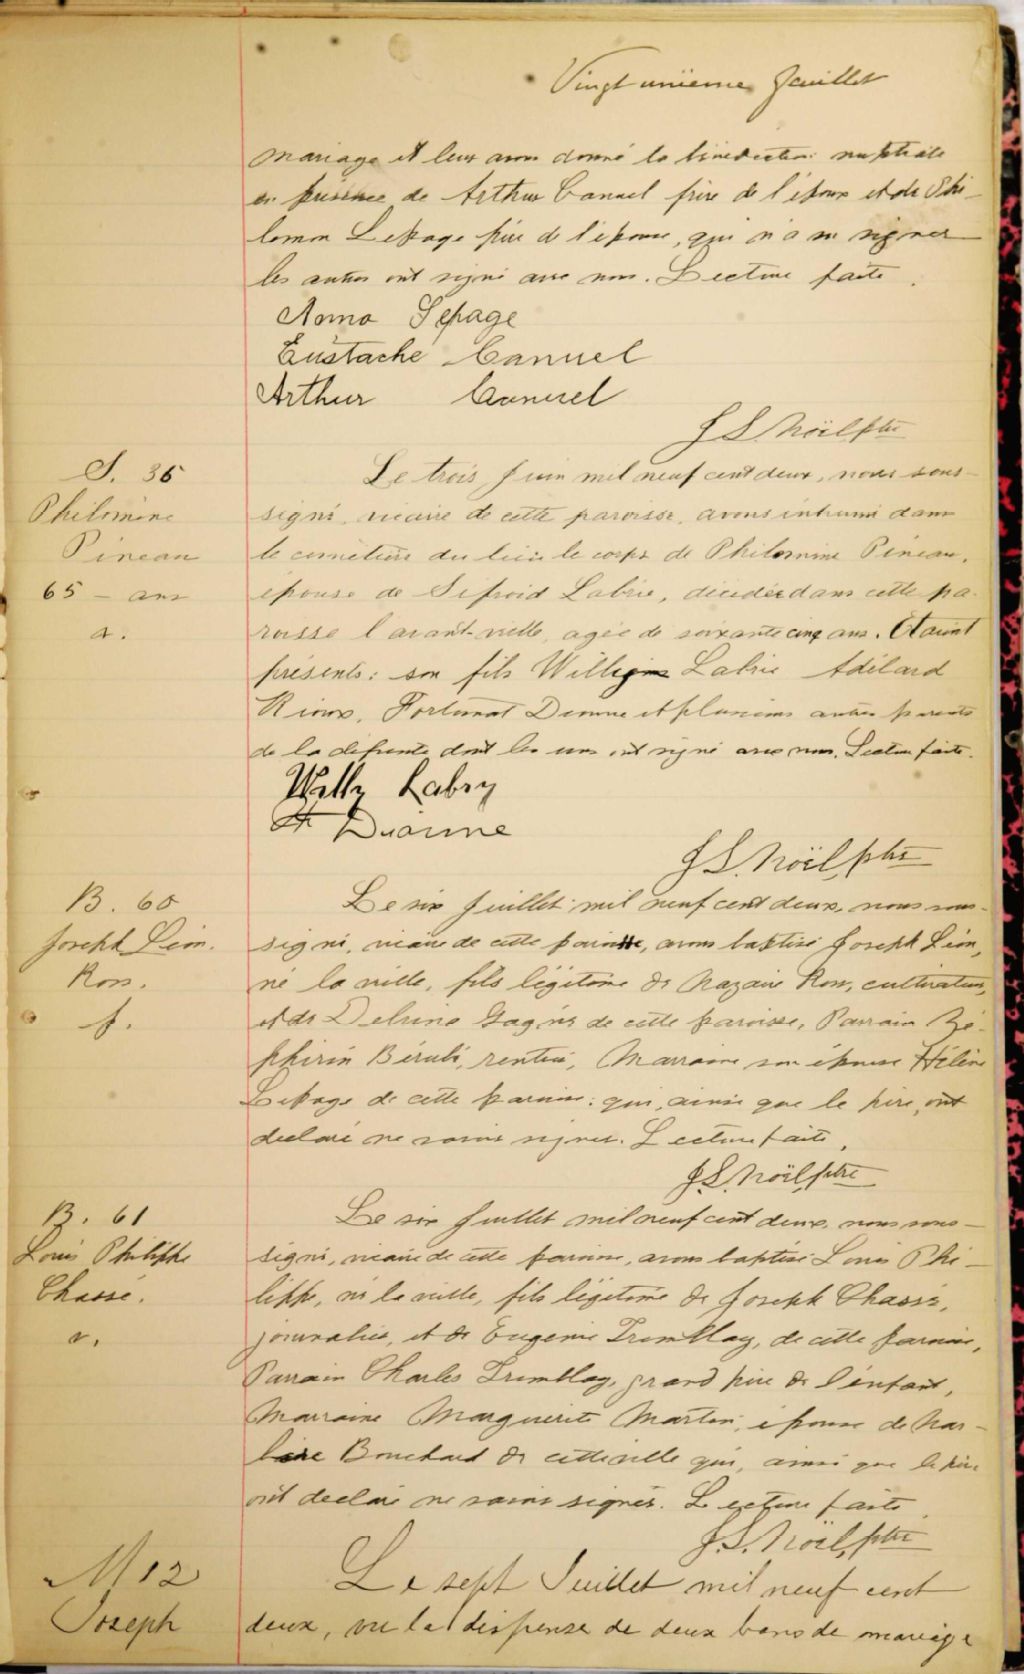 Vingt unième feuillet
mariage et leur avons donné la bénédiction nuptiale
en présence de Arthur Canuel frère de l'époux et de Phi-
lemon Lepage père de l'épouse, qui n'a su signer
les autres ont signé avec nous. Lecture faite.
Anna Lepage
Eustache Canuel
Arthur Canuel
J S. Noël ptre
S. 36
Philomène
Pineau
65 - ans
a.
Le trois Juin mil neuf cent deux, nous sous-
signé, vicaire de cette paroisse, avons inhumé dans
le cimetière du lieu le corps de Philomène Pineau,
épouse de Sifroid Labrie, décédée dans cette pa-
roisse l'avant-veille, agée de soixante cinq ans. Etaient
présents: son fils Labrie Adélard
Rioux, Fortunat Dionne et plusieurs autres parents
de la défunte dont les uns ont signé avec nous. Lecture faite.
Willy Labry
Dionne
J S. Noël, ptre
B. 60
Joseph Léon.
Ross.
f.
Le six Juillet mil neuf cent deux, nous sous-
signé, vicaire de cette paroisse, avons baptisé Joseph Léon,
né la veille, fils légitime de Nazaire Ross, cultivateur,
et de Delvina Gagné de cette paroisse, Parrain Zé-
phirin Bérubé, rentier, Marraine son épouse Hélène
Lepage de cette paroisse: qui, ainsi que le père, ont
déclaré ne savoir signer. Lecture faite.
J.S. Noël, ptre
B. 61
Louis Philippe
Chassé.
Le six Juillet mil neuf cent deux, nous sous-
signé, vicaire de cette paroisse, avons baptisé Louis Phi-
lippe, né la veille, fils légitime de Joseph Chassé,
journalier, et de Eugenie Tremblay, de cette paroisse,
Parrain Charles Tremblay, grand père de l'enfant,
Marraine Marguerite Martin, épouse de Nar-
Bouchard de cette ville qui, ainsi que le père
ont déclaré ne savoir signer. Lecture faite.
J.S. Noël, ptre
M 12
Joseph
Le sept Juillet mil neuf cent
deux, vu la dispense de deux bans de mariage